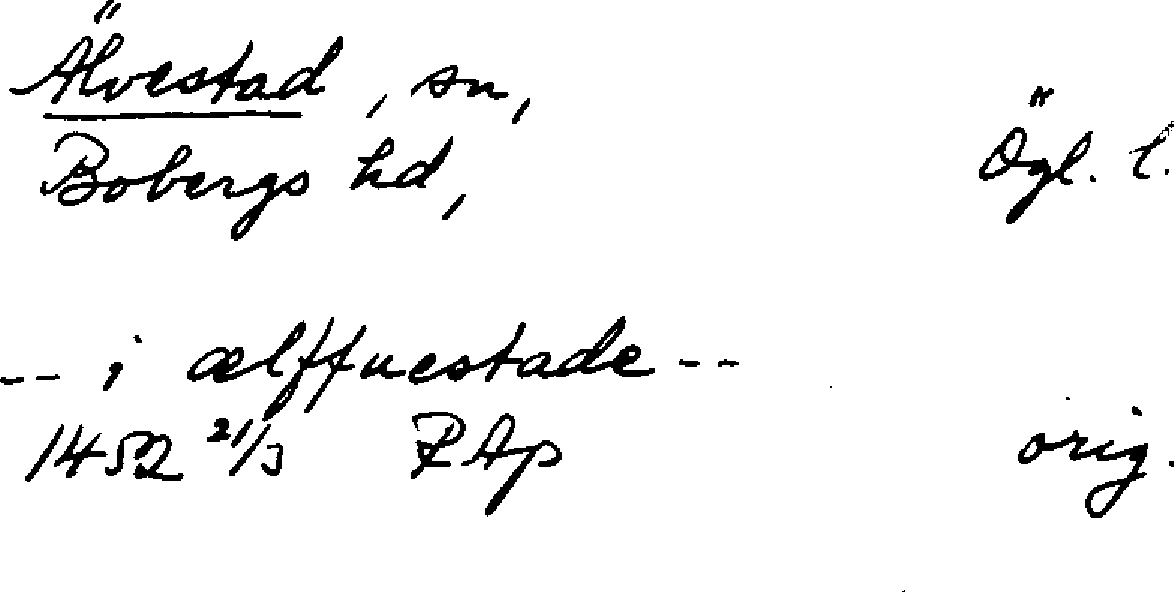 Älvestad, sn,
Bobergs hd, Ögl. l.
-- i ælffuestade --
1452 21/3 RAp orig.